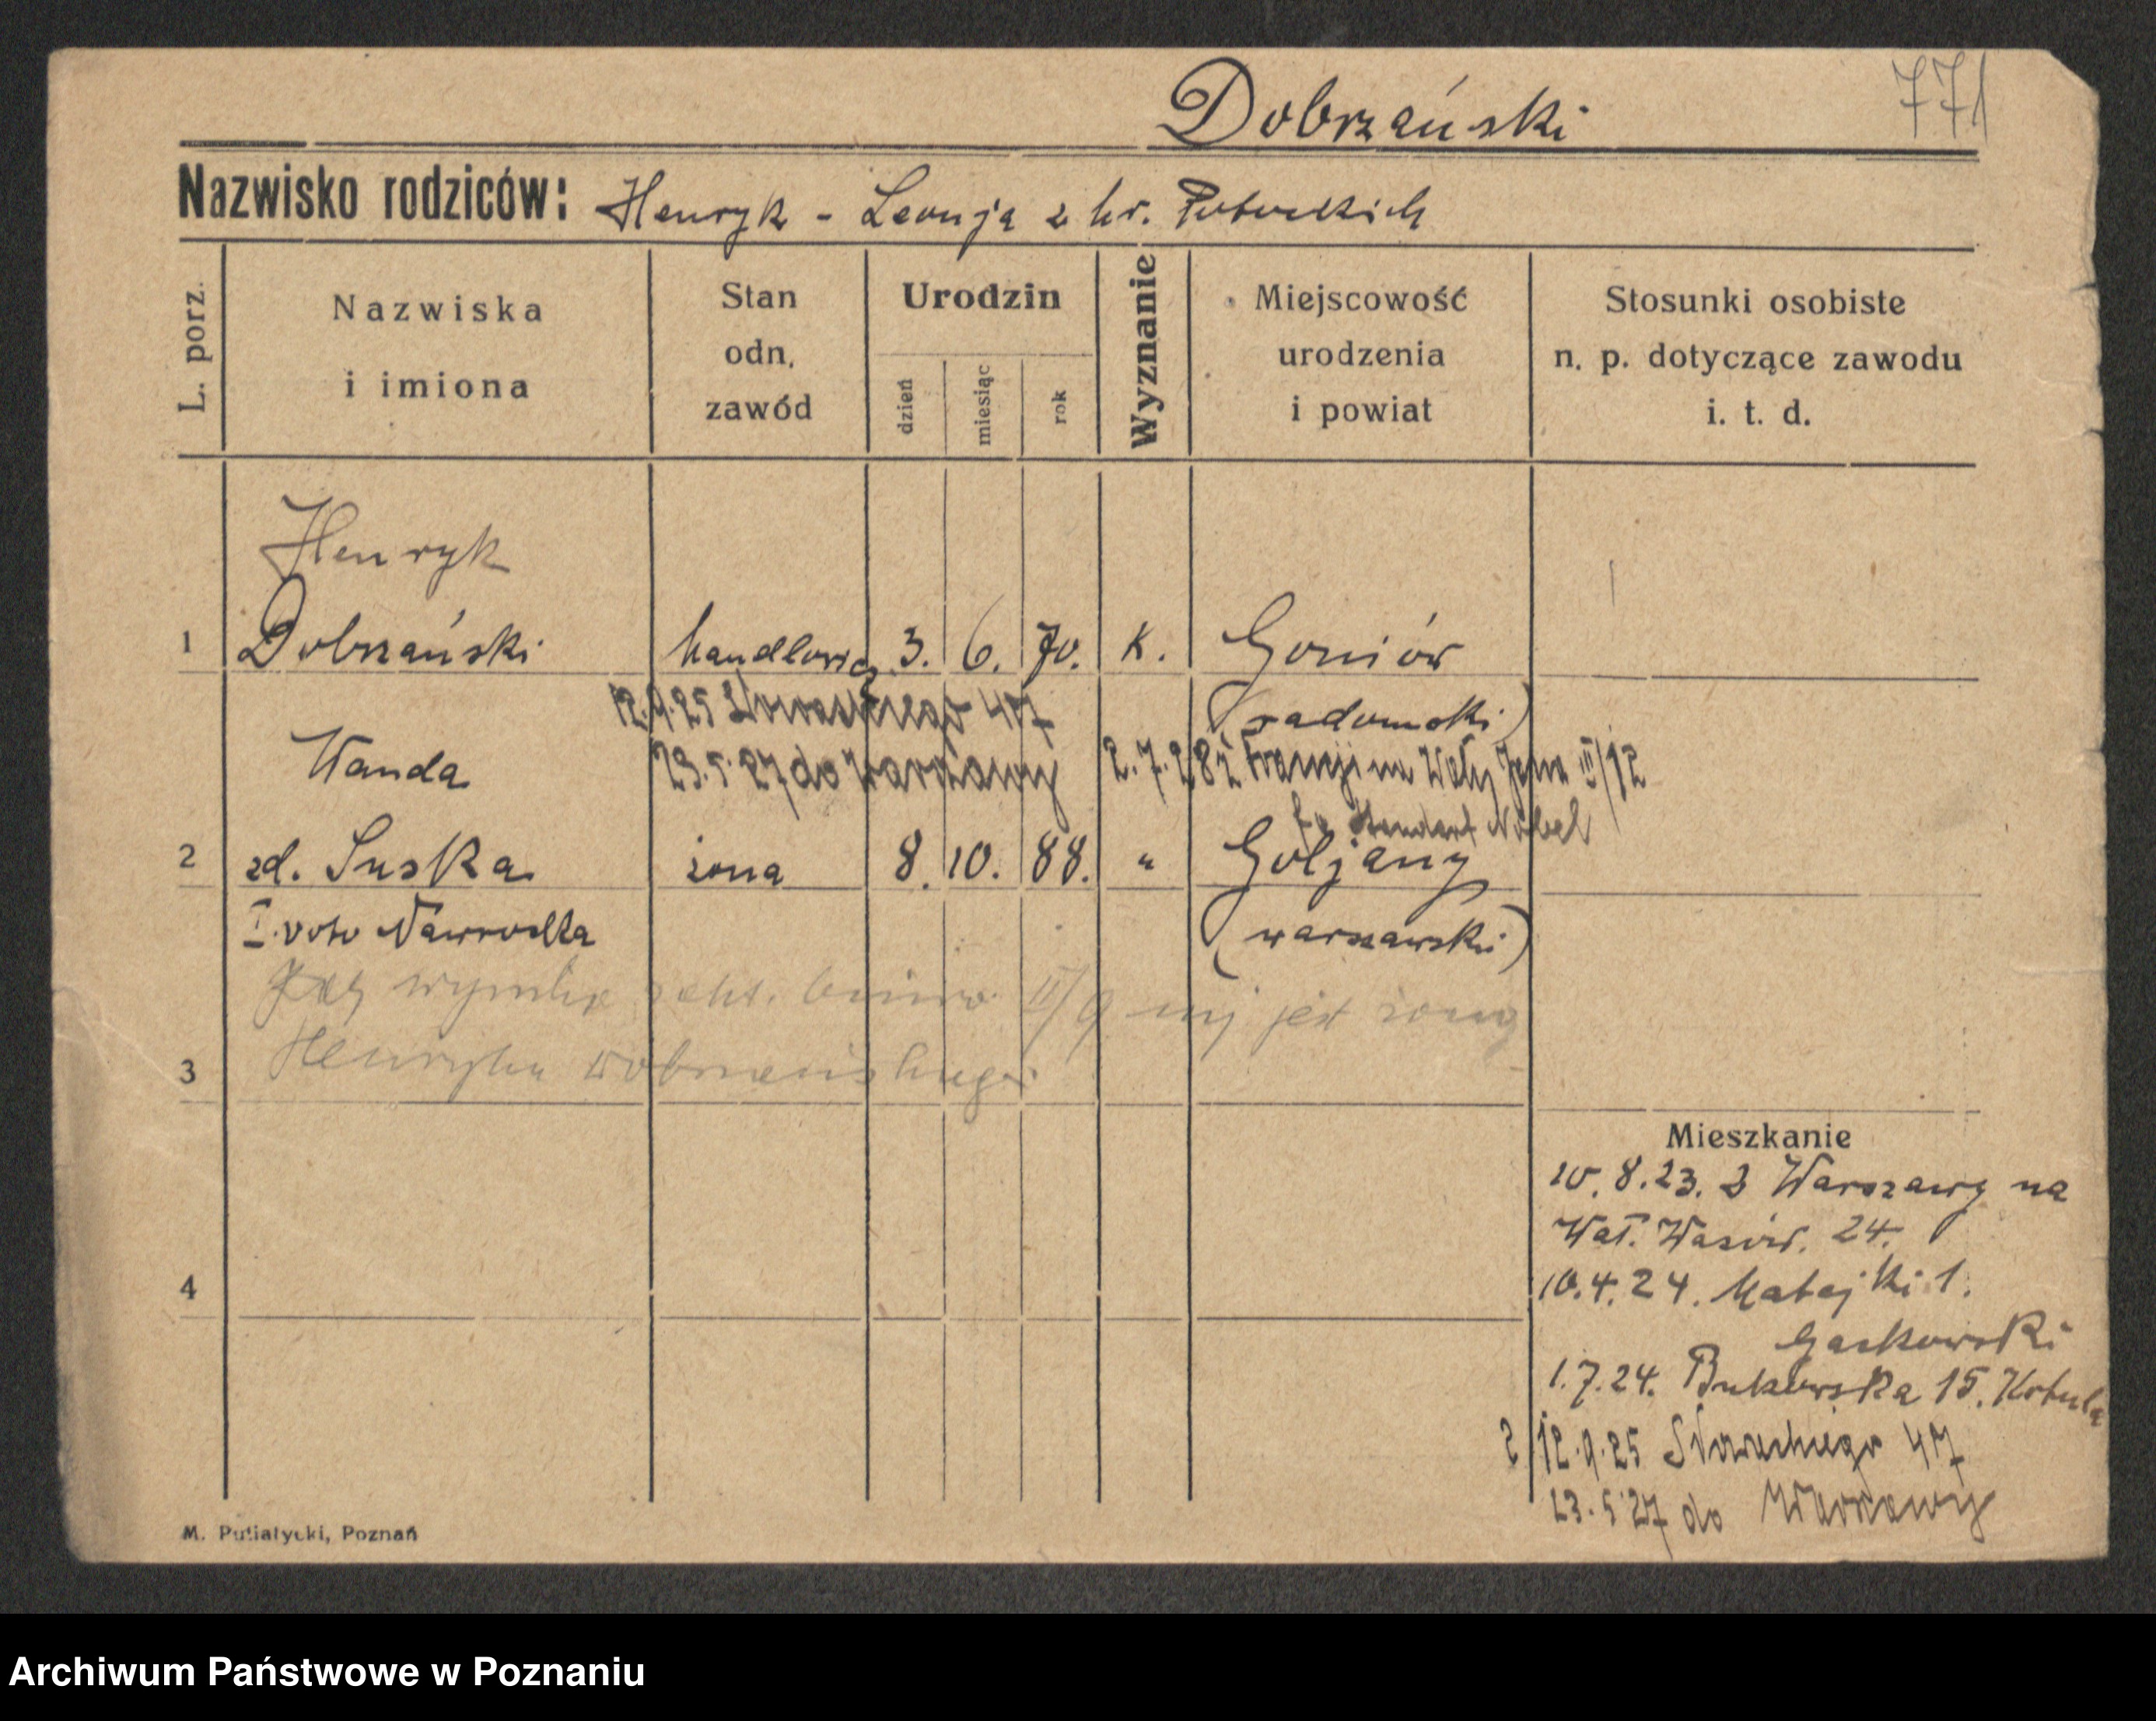 Dobrzański
771
Nazwisko rodziców: Henryk - Leonja z hr. Potockich
L. porz.
Nazwiska
i imiona
Stan
odn.
zawód
Urodzin
dzień
miesiąc
rok
Wyznanie
Miejscowość
urodzenia
i powiat
Stosunki osobiste
n. p. dotyczące zawodu
i. t. d.
Henryk
1 Dobrzański handlowiec 3. 6. 70. K. Goniów
(radomski)
12.9.25 Słowackiego 47
23.5.27 do Warszawy
2.7.28 z Francji na Wały Jana III/12
Standart Nobel
Wanda
2 zd. Suska żona 8. 10. 88. " Goljany
(warszawski)
I. voto Nawrocka
jest żoną
3 Henryka Dobrzańskiego
4
Mieszkanie
10.8.23. z Warszawy na
Wał. Wazów. 24.
10.4.24. Matejki 1.
Gaskowski
1.7.24. Bukowska 15. Kotula
2 12.9.25 Słowackiego 47
23.5.27 do Warszawy
M. Putiatycki, Poznań
Archiwum Państwowe w Poznaniu